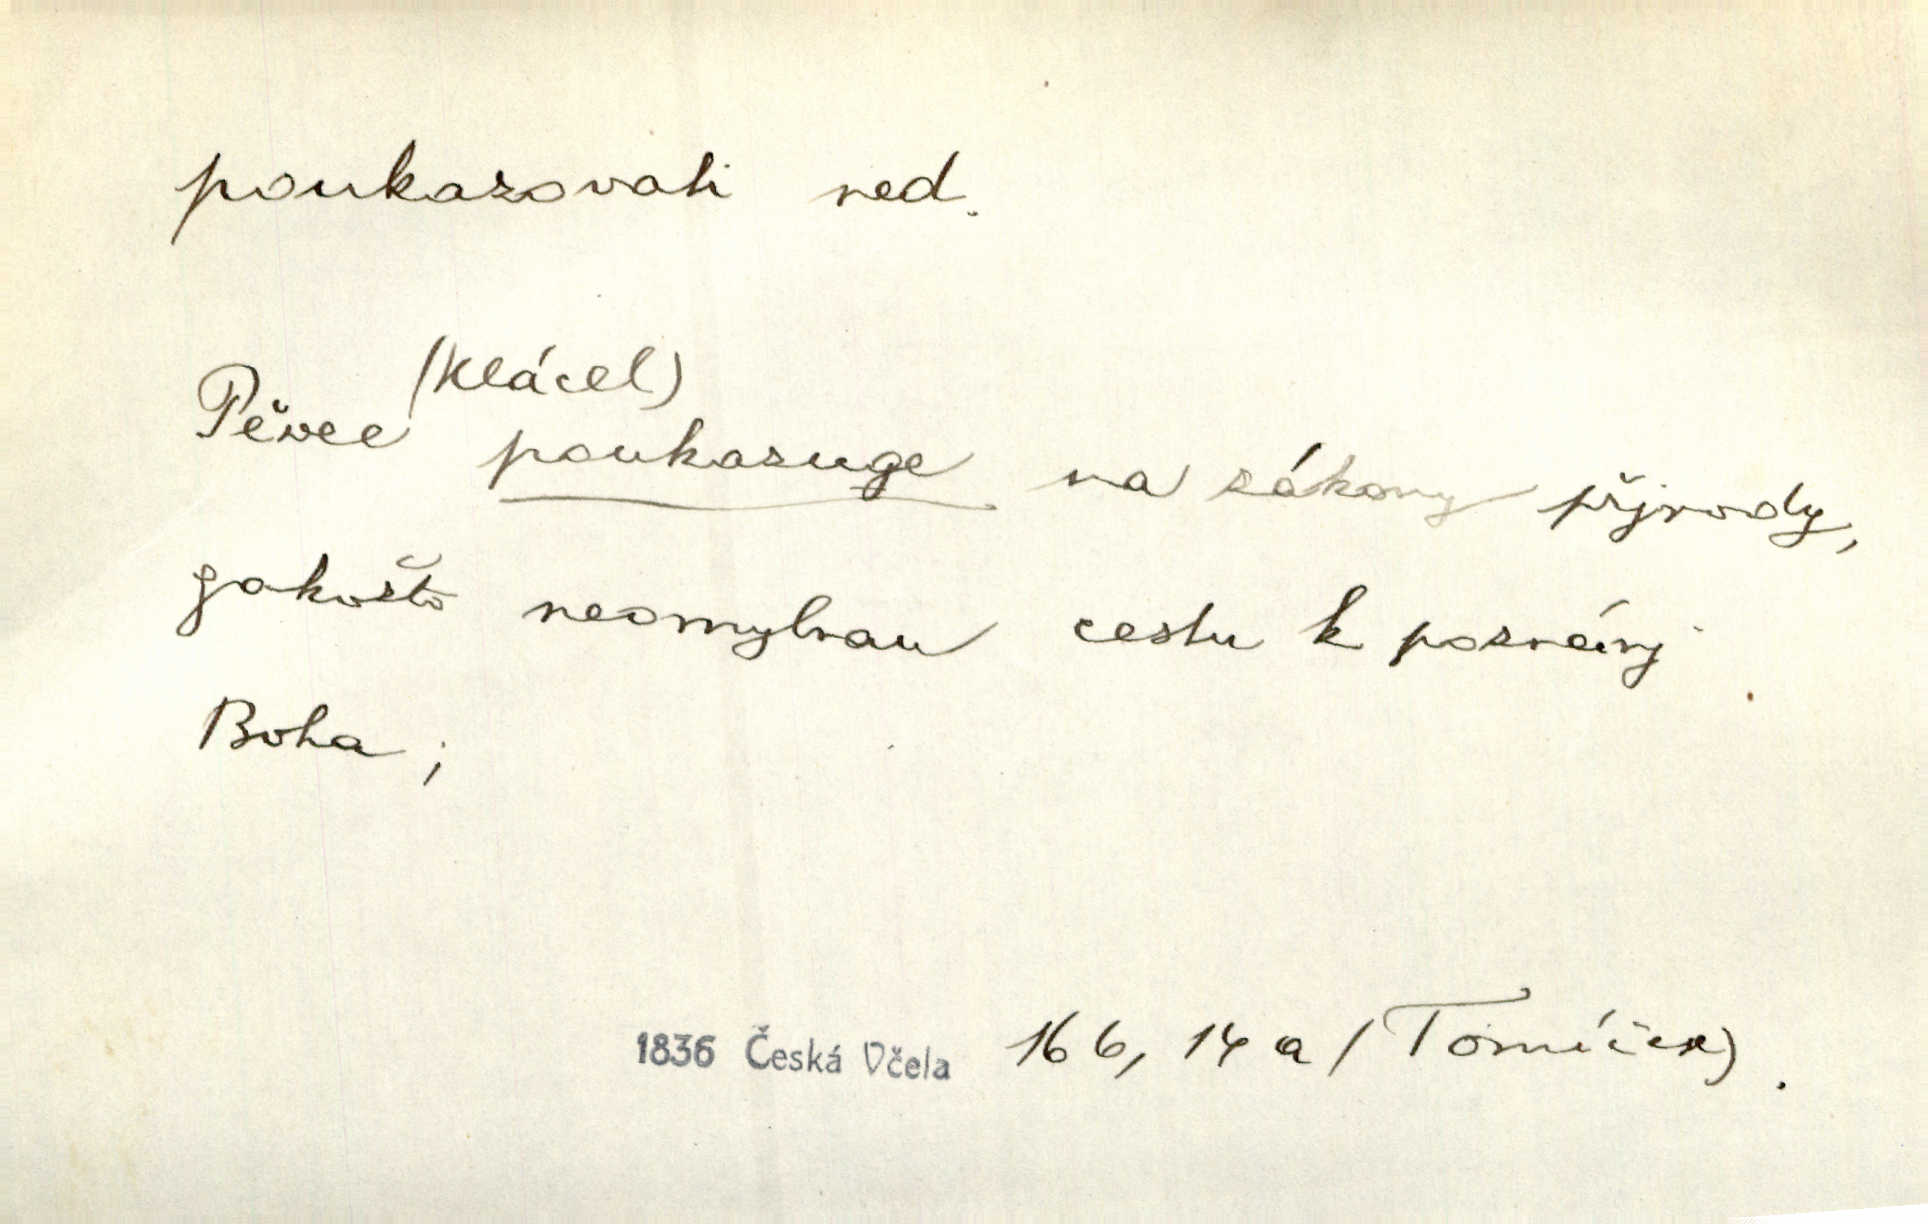 poukazovati ned.
(Klácel)
Pěvec poukazuge na zákony přjrody,
gakožto neomylnau cestu k poznánj
Boha;
1836 Česká Včela 166, 14 a (Tomíček).